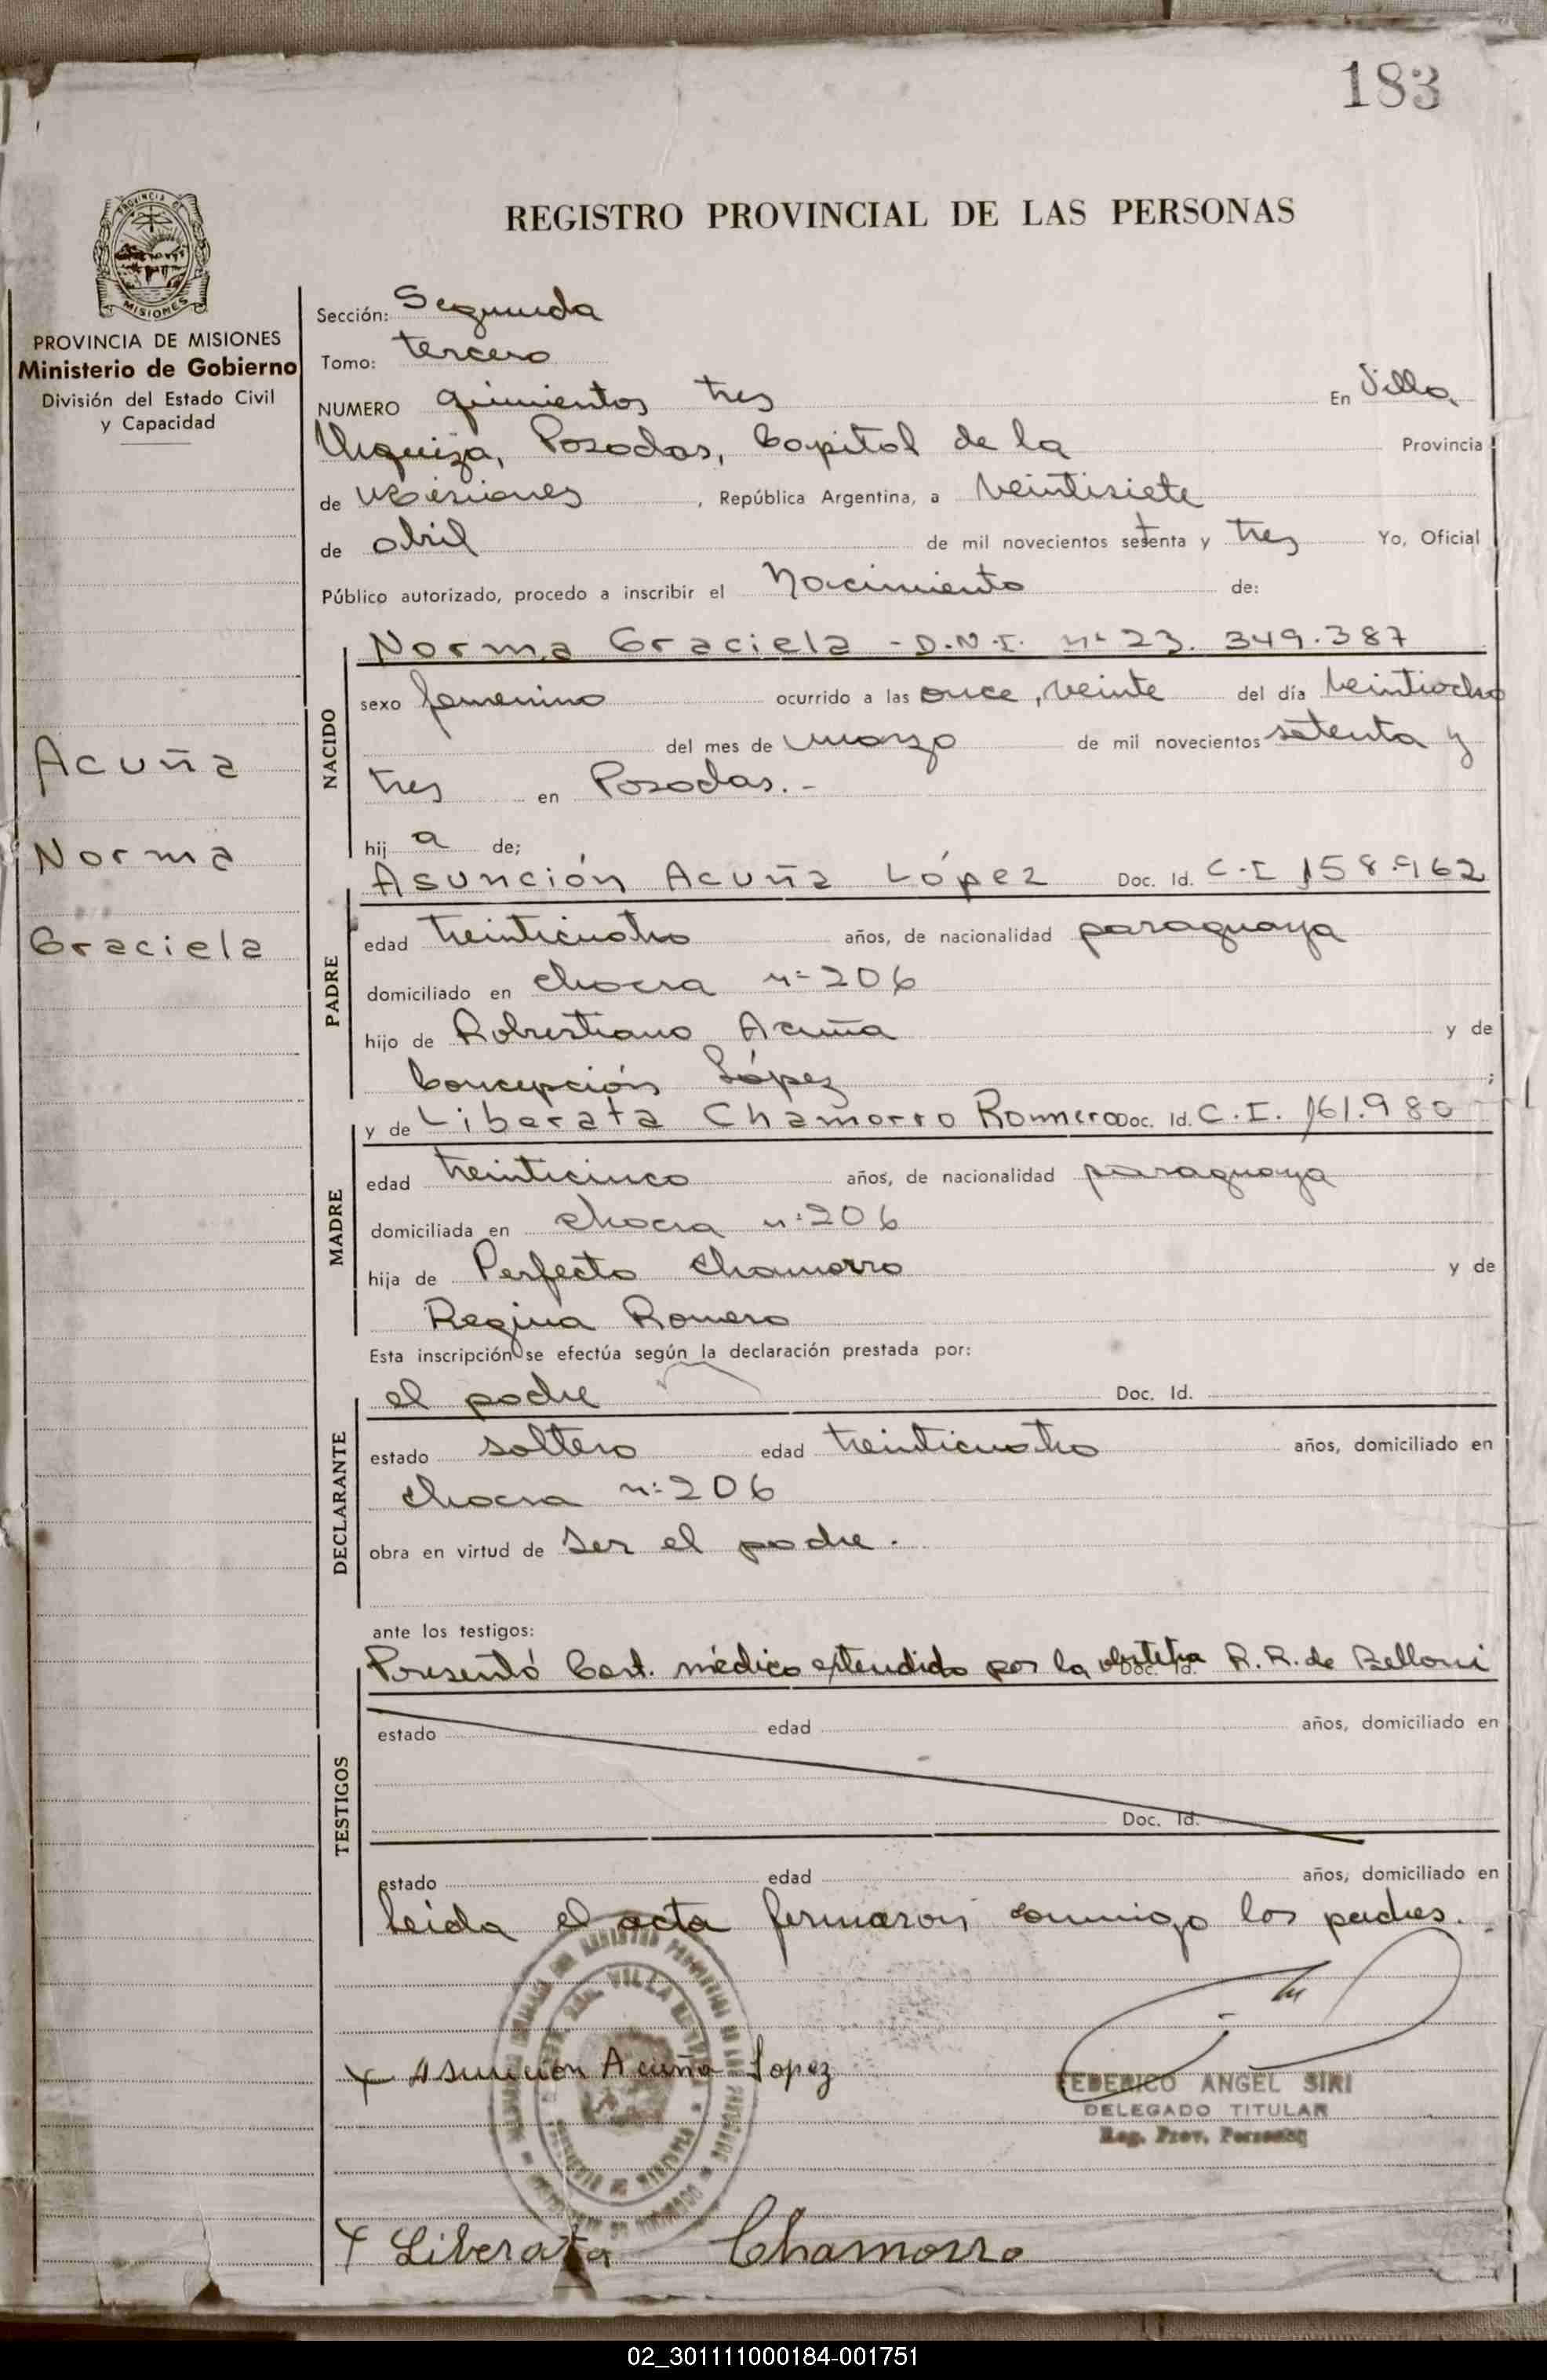 183
PROVINCIA DE
MISIONES
REGISTRO PROVINCIAL DE LAS PERSONAS
PROVINCIA DE MISIONES
Ministerio de Gobierno
División del Estado Civil
y Capacidad
Acuña
Norma
Graciela
Sección: Segunda
Tomo: tercero
NUMERO quinientos tres En Villa
Urquiza, Posadas, Capital de la Provincia
de Misiones, República Argentina, a veintisiete
de abril de mil novecientos setenta y tres Yo, Oficial
Público autorizado, procedo a inscribir el Nacimiento de:
NACIDO
Norma Graciela - D.N.I. nº 23.349.387
sexo femenino ocurrido a las once, veinte del día veintiocho
del mes de marzo de mil novecientos setenta y
tres en Posadas.-
hij a de;
PADRE
Asunción Acuña López Doc. Id. C.I 158.962
edad treinticuatro años, de nacionalidad paraguaya
domiciliado en chacra nº 206
hijo de Robustiano Acuña y de
Concepción López ;
MADRE
y de Liberata Chamorro Romero Doc. Id. C.I. 161.980
edad treinticinco años, de nacionalidad paraguaya
domiciliada en chacra nº 206
hija de Perfecto Chamorro y de
Regina Romero
Esta inscripción se efectúa según la declaración prestada por:
DECLARANTE
el padre Doc. Id.
estado soltero edad treinticuatro años, domiciliado en
chacra nº 206
obra en virtud de ser el padre.
ante los testigos:
TESTIGOS
Presentó Cert. médico extendido por la obstetra Doc. Id. R.R. de Belloni
estado edad años, domiciliado en
Doc. Id.
estado edad años, domiciliado en
Leida el acta firmaron conmigo los padres.
VILLA
x Asuncion Acuña Lopez
FEDERICO ANGEL SIRI
DELEGADO TITULAR
Reg. Prov. Personas
x Liberata Chamorro
02_301111000184-001751